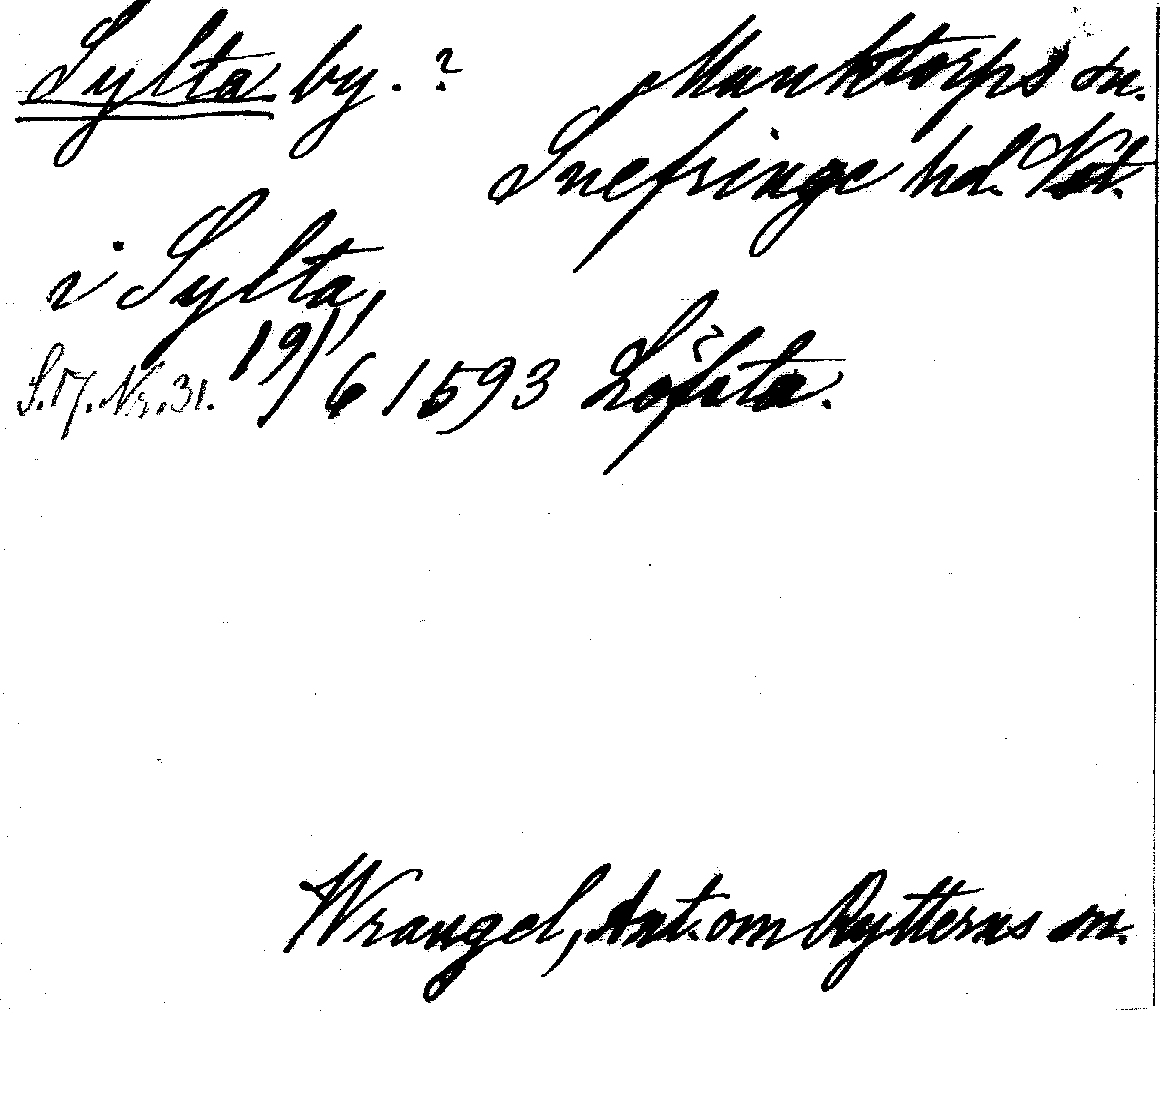 Sylta by. ? Munktorps sn.
Snefringe hd. Vstl.
i Sylta,
S. 17. Nr. 31. 19/6 1593 Löfsta.
Wrangel, Ant. om Rytterns sn.